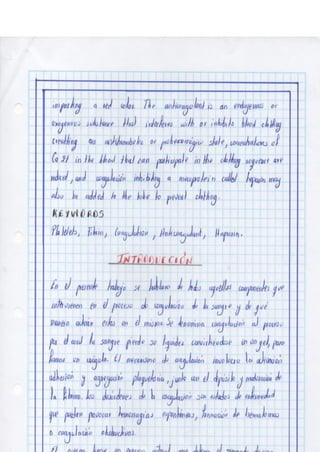 imparting a red color. The anticoagulant is an endogenous or
exogenous substance that interferes with or inhibits blood clotting
creating an antithrombotic or prohemorrhagic state, concentrations of
Ca II in the blood that can participate in the clotting sequence are
reduced, and coagulation inhibiting a mucoprotein called heparin may
also be added to the tube to prevent clotting.
KEYWORDS
Platelets, Fibrin, Coagulation, Anticoagulant, Heparin.
INTRODUCCIÓN
En el presente trabajo se hablara de todos aquellos componentes que
intervienen en el proceso de coagulación de la sangre y de qué
manera actúan estos en el mismo. Se denomina coagulación al proceso
por el cual la sangre pierde su liquidez convirtiendose en un gel, para
formar un coágulo. El mecanismo de coagulación involucra la activación
adhesion y agregación plaquetaria, junto con el depósito y maduración de
la fibrina. Los desordenes de la coagulación son estados de enfermedad
que pueden provocar hemorragias espontáneas, formación de hematomas
o coagulación obstructiva.